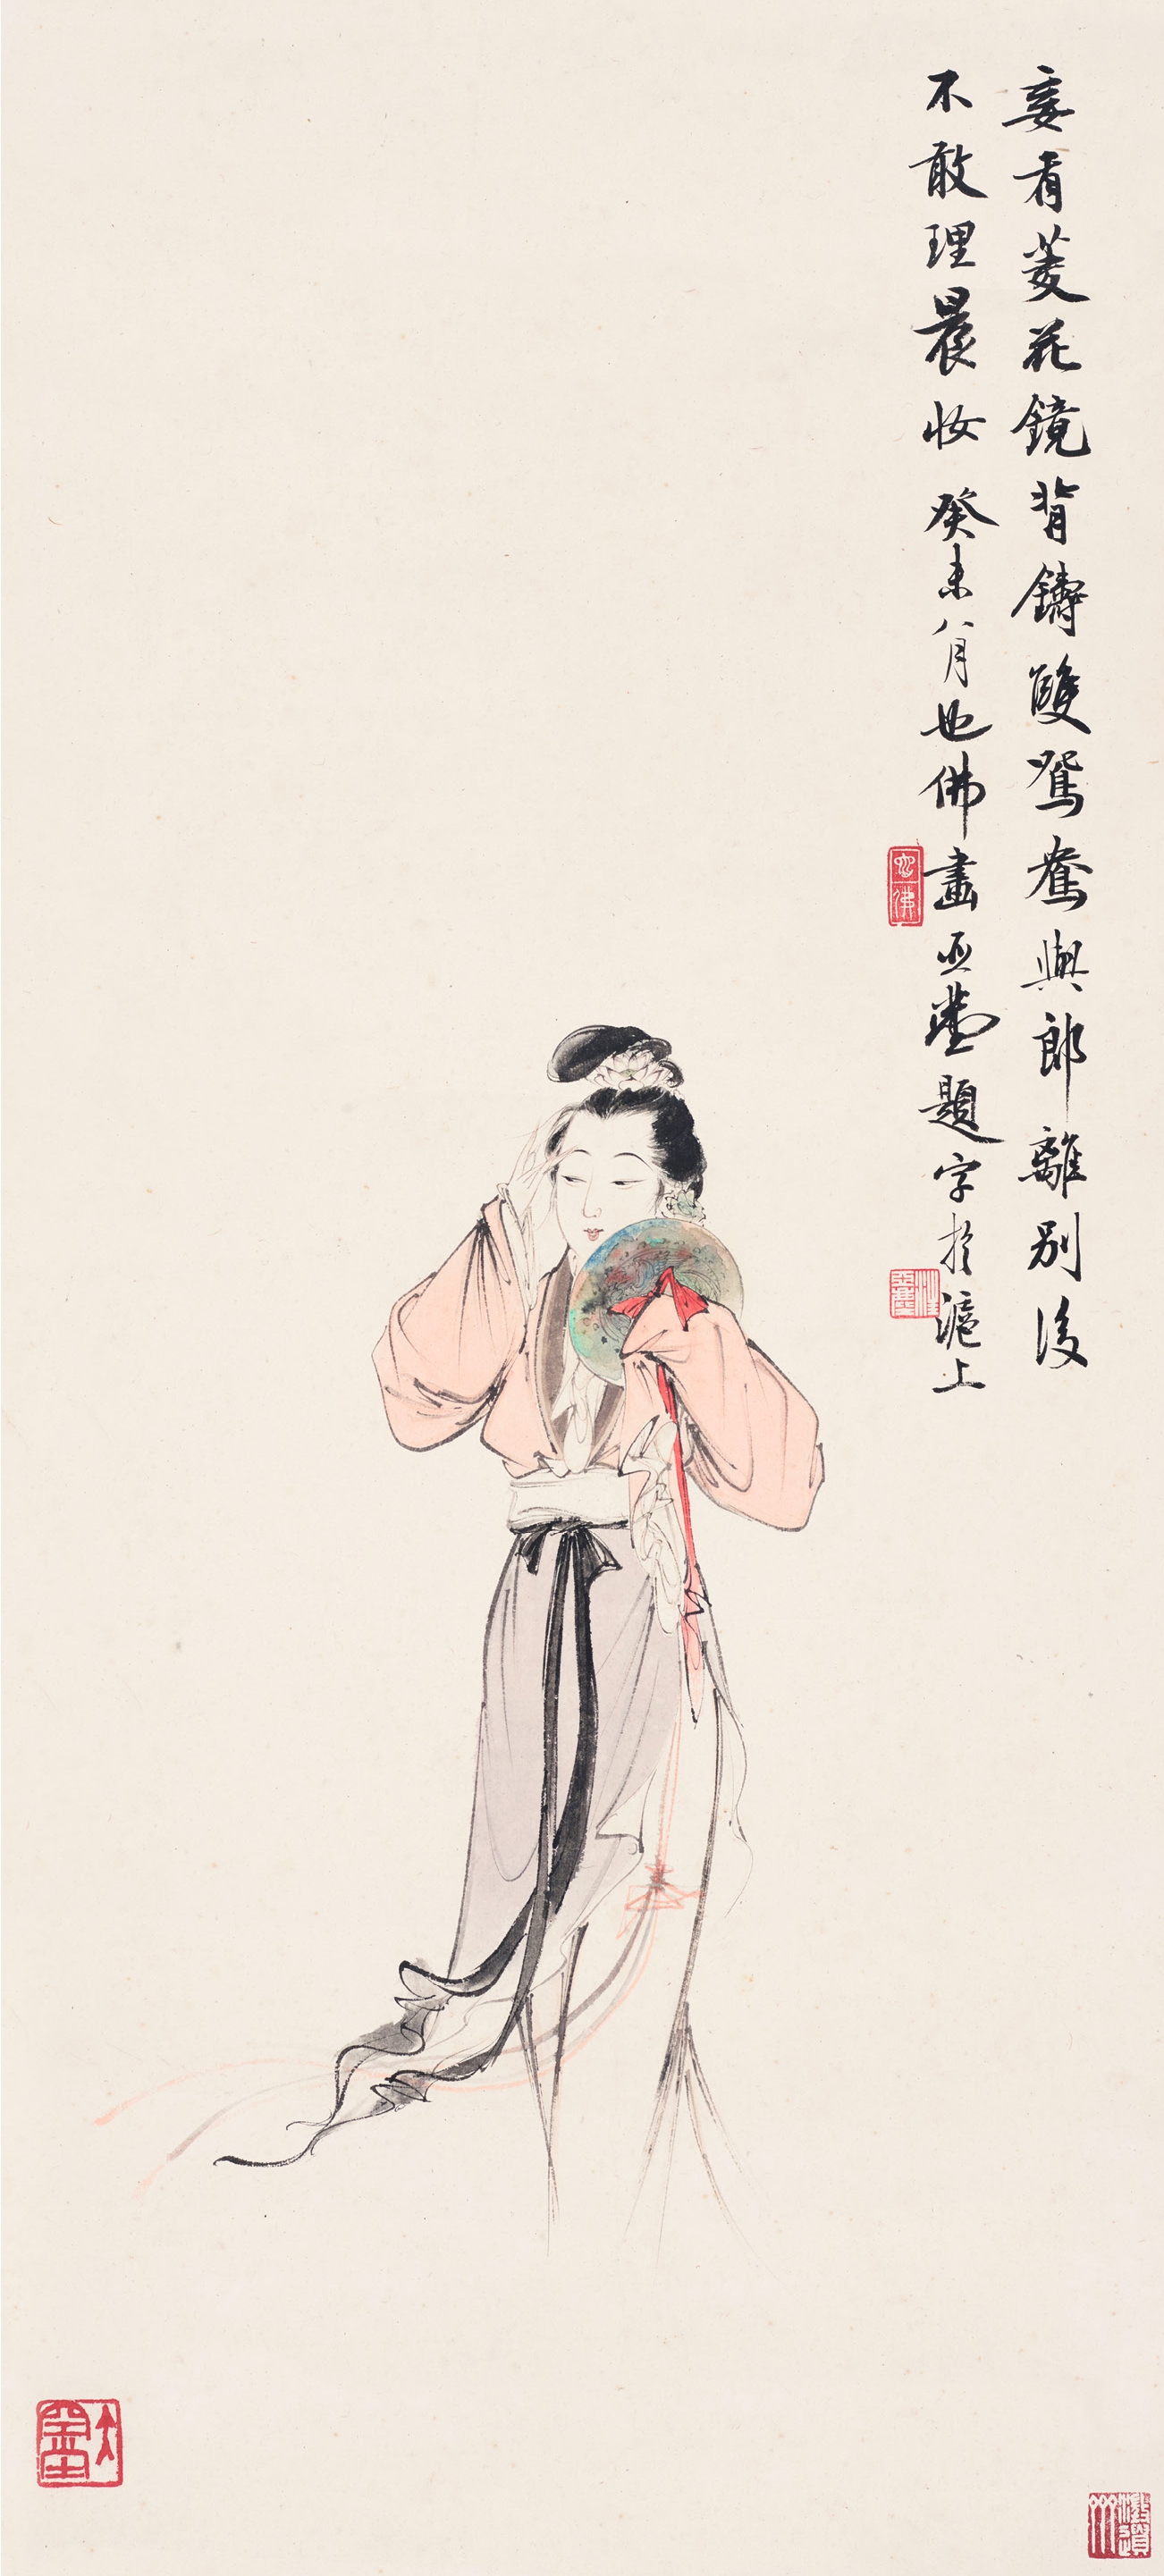 妾有菱花鏡背鑄雙鴛鴦與郎離別後
不敢理晨妝 癸未八月也佛畫亞塵題字於滬上
也佛